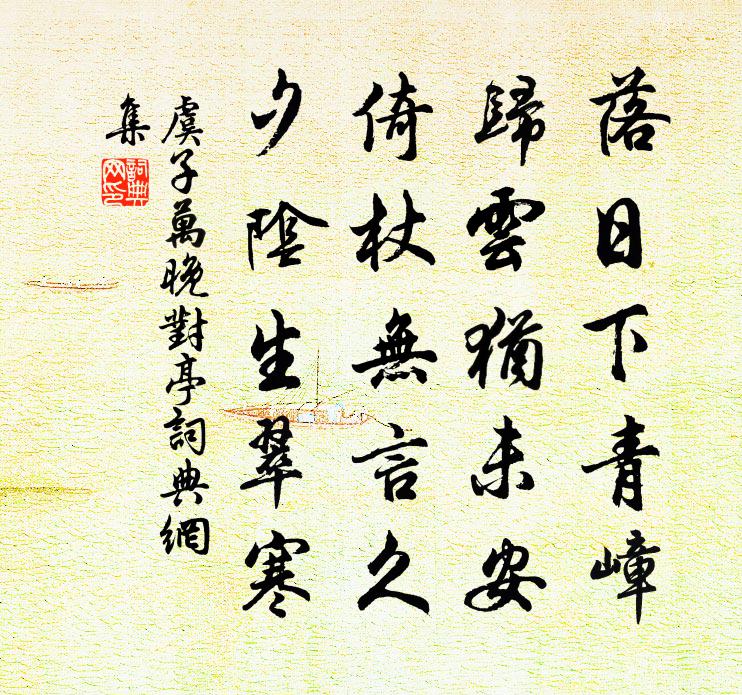 落日下青嶂
歸雲猶未安
倚杖無言久
夕陰生翠寒
虞子萬晚對亭詞典網
集
詞典
网印